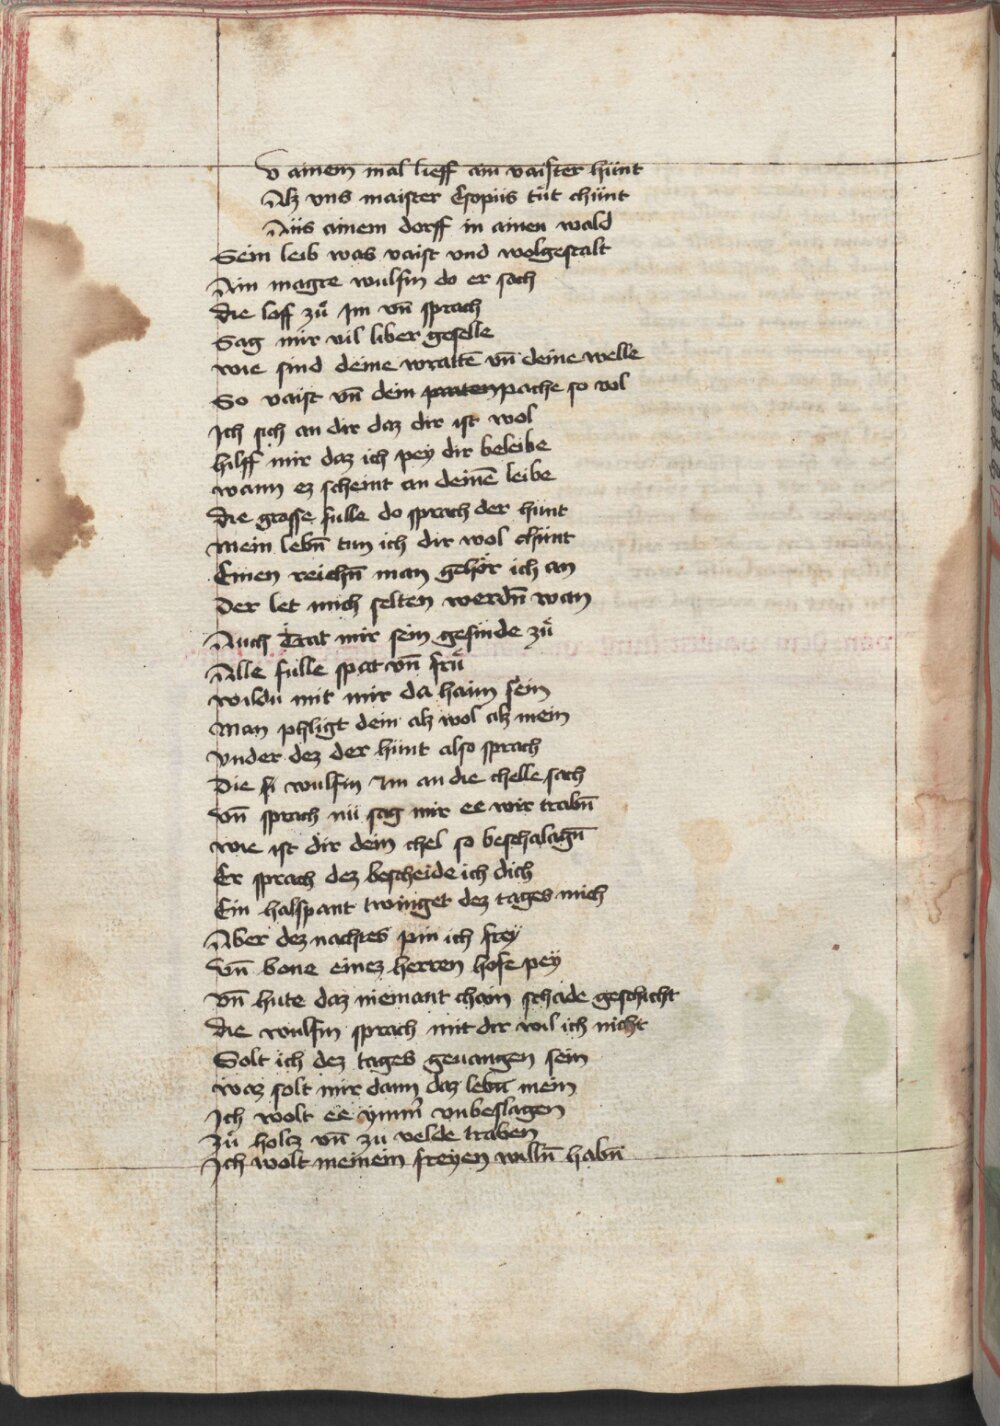 v ainem mal lieff ain vaister hünt
Alz vns maister Esopüs tüt chünt
Aüs ainem dorff in ainen wald
Sein leib was vaist vnd wolgestalt
Ain magre wulfin do er sach
die loff zů Im vn̄ sprach
Sag mir vil liber geselle
wie sind deine wratē vn̄ deine welle
So vaist vn̄ dein pache so vol
Ich sich an dir daz dir ist wol
hilff mir daz ich pey dir beleibe
wann ez scheint an deinē leibe
die grosse fulle do sprach der hünt
Mein lebn̄ tun ich dir wol chünt
Einen reichn̄ man gehör ich an
Der let mich selten werdn̄ wan
Auch Trat mir sein gesinde zů
Alle fulle spat vn̄ frü
wildu mit mir da haim sein
Man phligt dein alz wol alz mein
vnder dez der hünt also sprach
Die wulfin Im an die chelle sach
vn̄ sprach nü sag mir ee wir trabn̄
wie ist dir dein chel so beschalagn̄
Er sprach dez bescheide ich dich
Ein halspant twinget dez tages mich
Aber dez nachtes pin ich frey
vn̄ bone einez herren hofe pey
vn̄ hute daz niemant chain schade geschicht
die wulfin sprach mit dir wil ich nicht
Solt ich dez tages geuangen sein
waz solt mir dann daz lebn̄ mein
Ich wolt ee ymm̄ vnbeslagen
zů holcz vn̄ zu velde traben
Ich wolt meinem freyen willn̄ habn̄